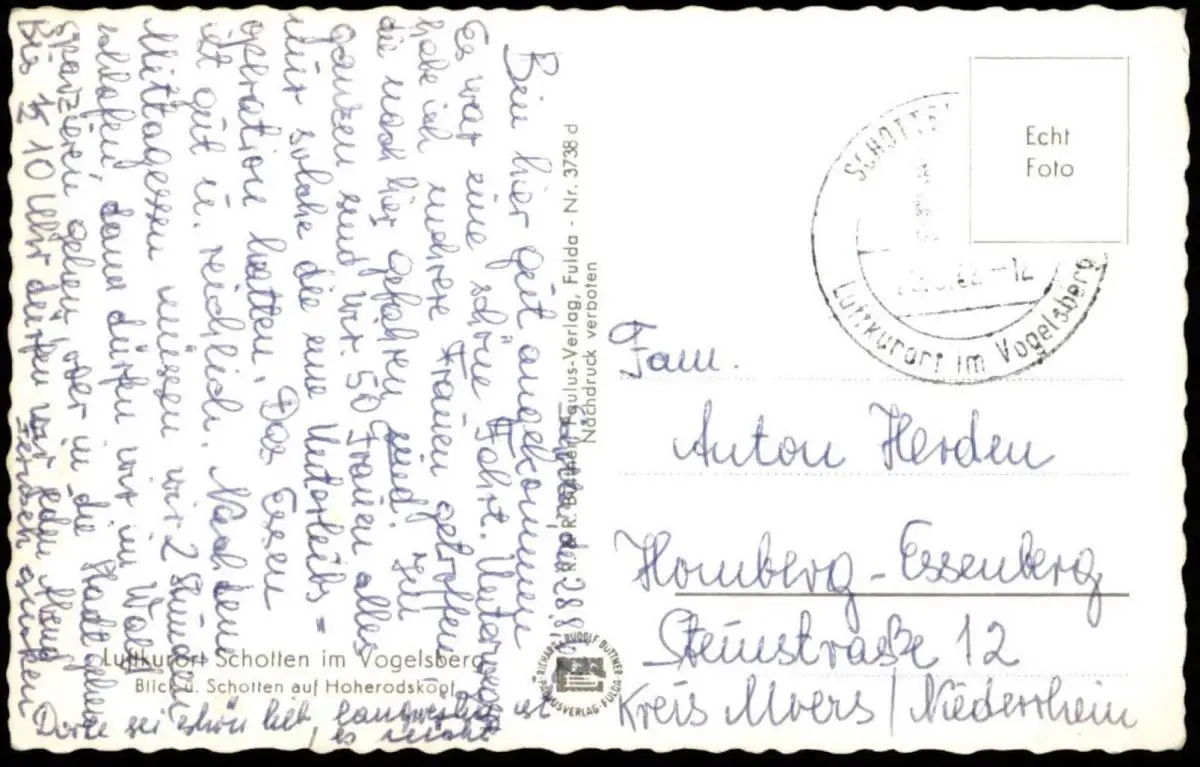 Bin hier gut angekommen
Es war eine schöne Fahrt. Unterwegs
habe ich mehrere Frauen getroffen
die nach hier gefahren sind. Im
ganzen sind wir 50 Frauen alles
nur solche die eine Unterleibs =
operation hatten. Das Essen
ist gut u. reichlich. Nach dem
Mittagessen müssen wir 2 Stunden
schlafen, dann dürfen wir im Wald
spazieren gehen oder in die Stadt gehen
Bis ½ 10 Uhr dürfen wir
sei schön lieb, langweilig ist
es nicht
R. u. R. Büttner, Paulus-Verlag, Fulda - Nr. 3738 d
Nachdruck verboten
Luftkurort Schotten im Vogelsberg
Blick ü. Schotten auf Hoherodskopf
RICHARD U. RUDOLF BÜTTNER
PAULUSVERLAG · FULDA
Echt
Foto
SCHOTTEN
-12
Luftkurort im Vogelsberg
Fam.
Anton Herden
Homberg - Essenberg
Steinstraße 12
Kreis Moers / Niederrhein